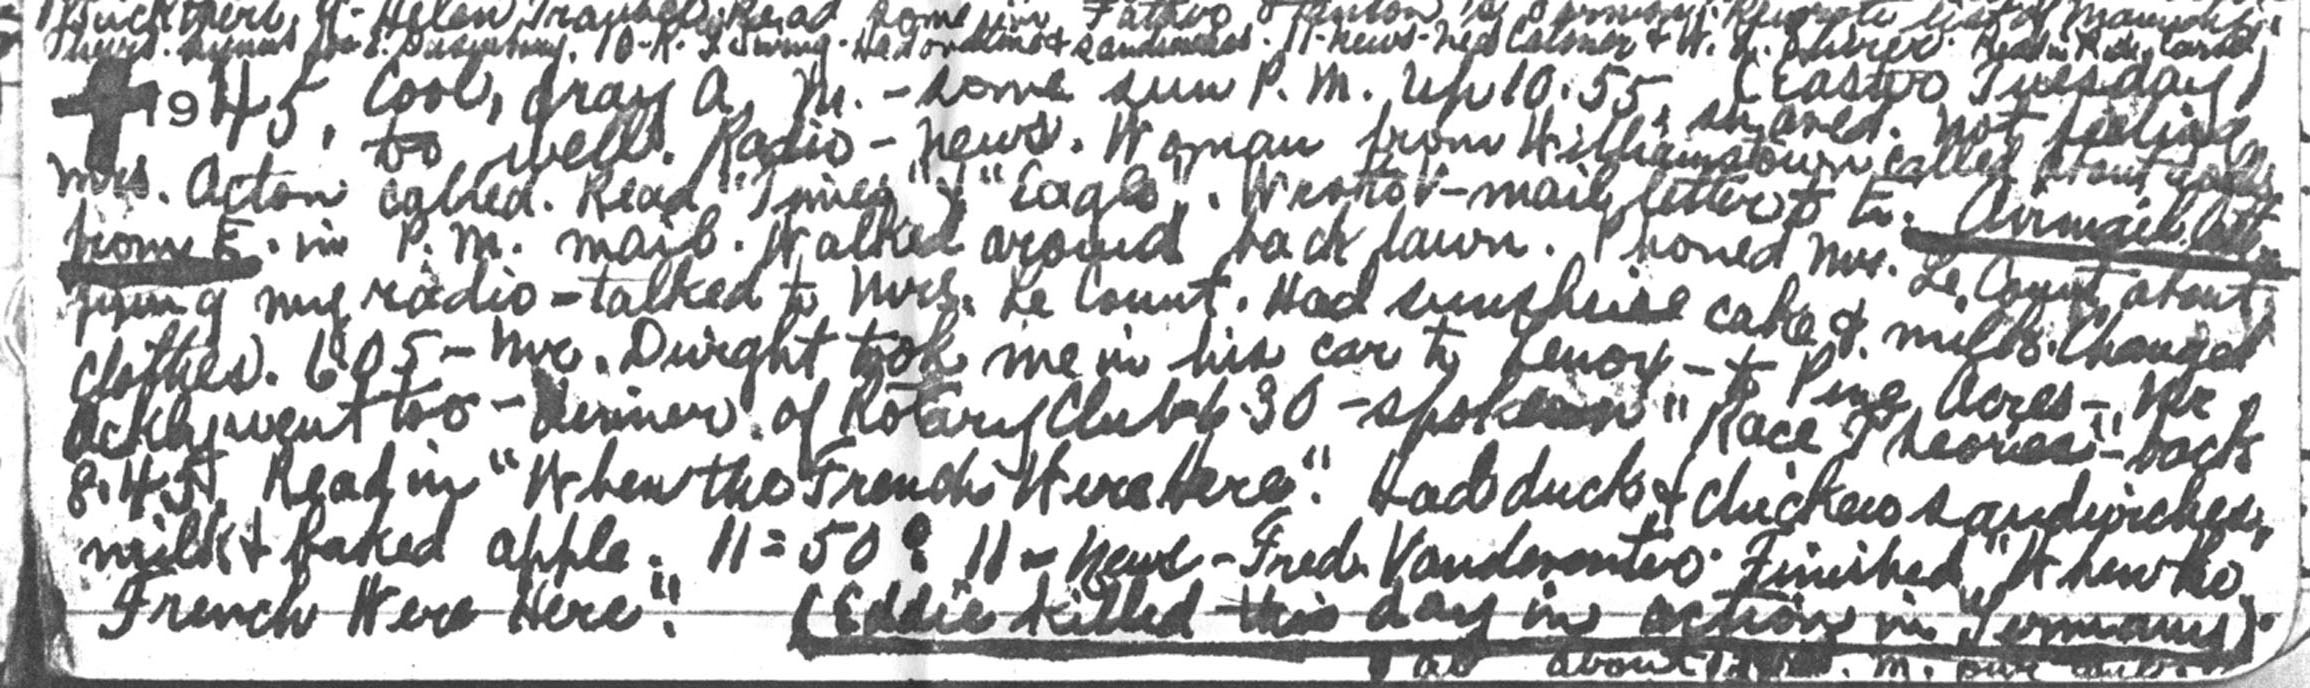 Helen Read some in Father
10- 11-News-Ned Calmer & W. L. Shirer. Read in
1945, Cool, gray A. M. - some sun P. M. Up 10:55. (Easter Tuesday)
shaved. Not feeling
too well. Radio - News. Woman from Williamstown called about
Mrs. Acton called. Read "Times" & "Eagle". Wrote V-mail letter to E. Airmail letter
from E. in P. M. mail. Walked around back lawn. Phoned Mr. Le Count about
fixing my radio - talked to Mrs. Le Count. Had sunshine cake & milk. Changed
clothes. 6:05 - Mr. Dwight took me in his car to Lenox - to Pine Acres - Mr.
Ackly went too - dinner of Rotary Club 6:30 - spoke on "Race Theories" - back
8:45. Read in "When the French Were Here". Had duck & chicken sandwiches,
milk & baked apple. 11=50 11 - News - Fred Vandeventer. Finished "When the
French Were Here".
(Eddie killed this day in action in Germany).
about M. our